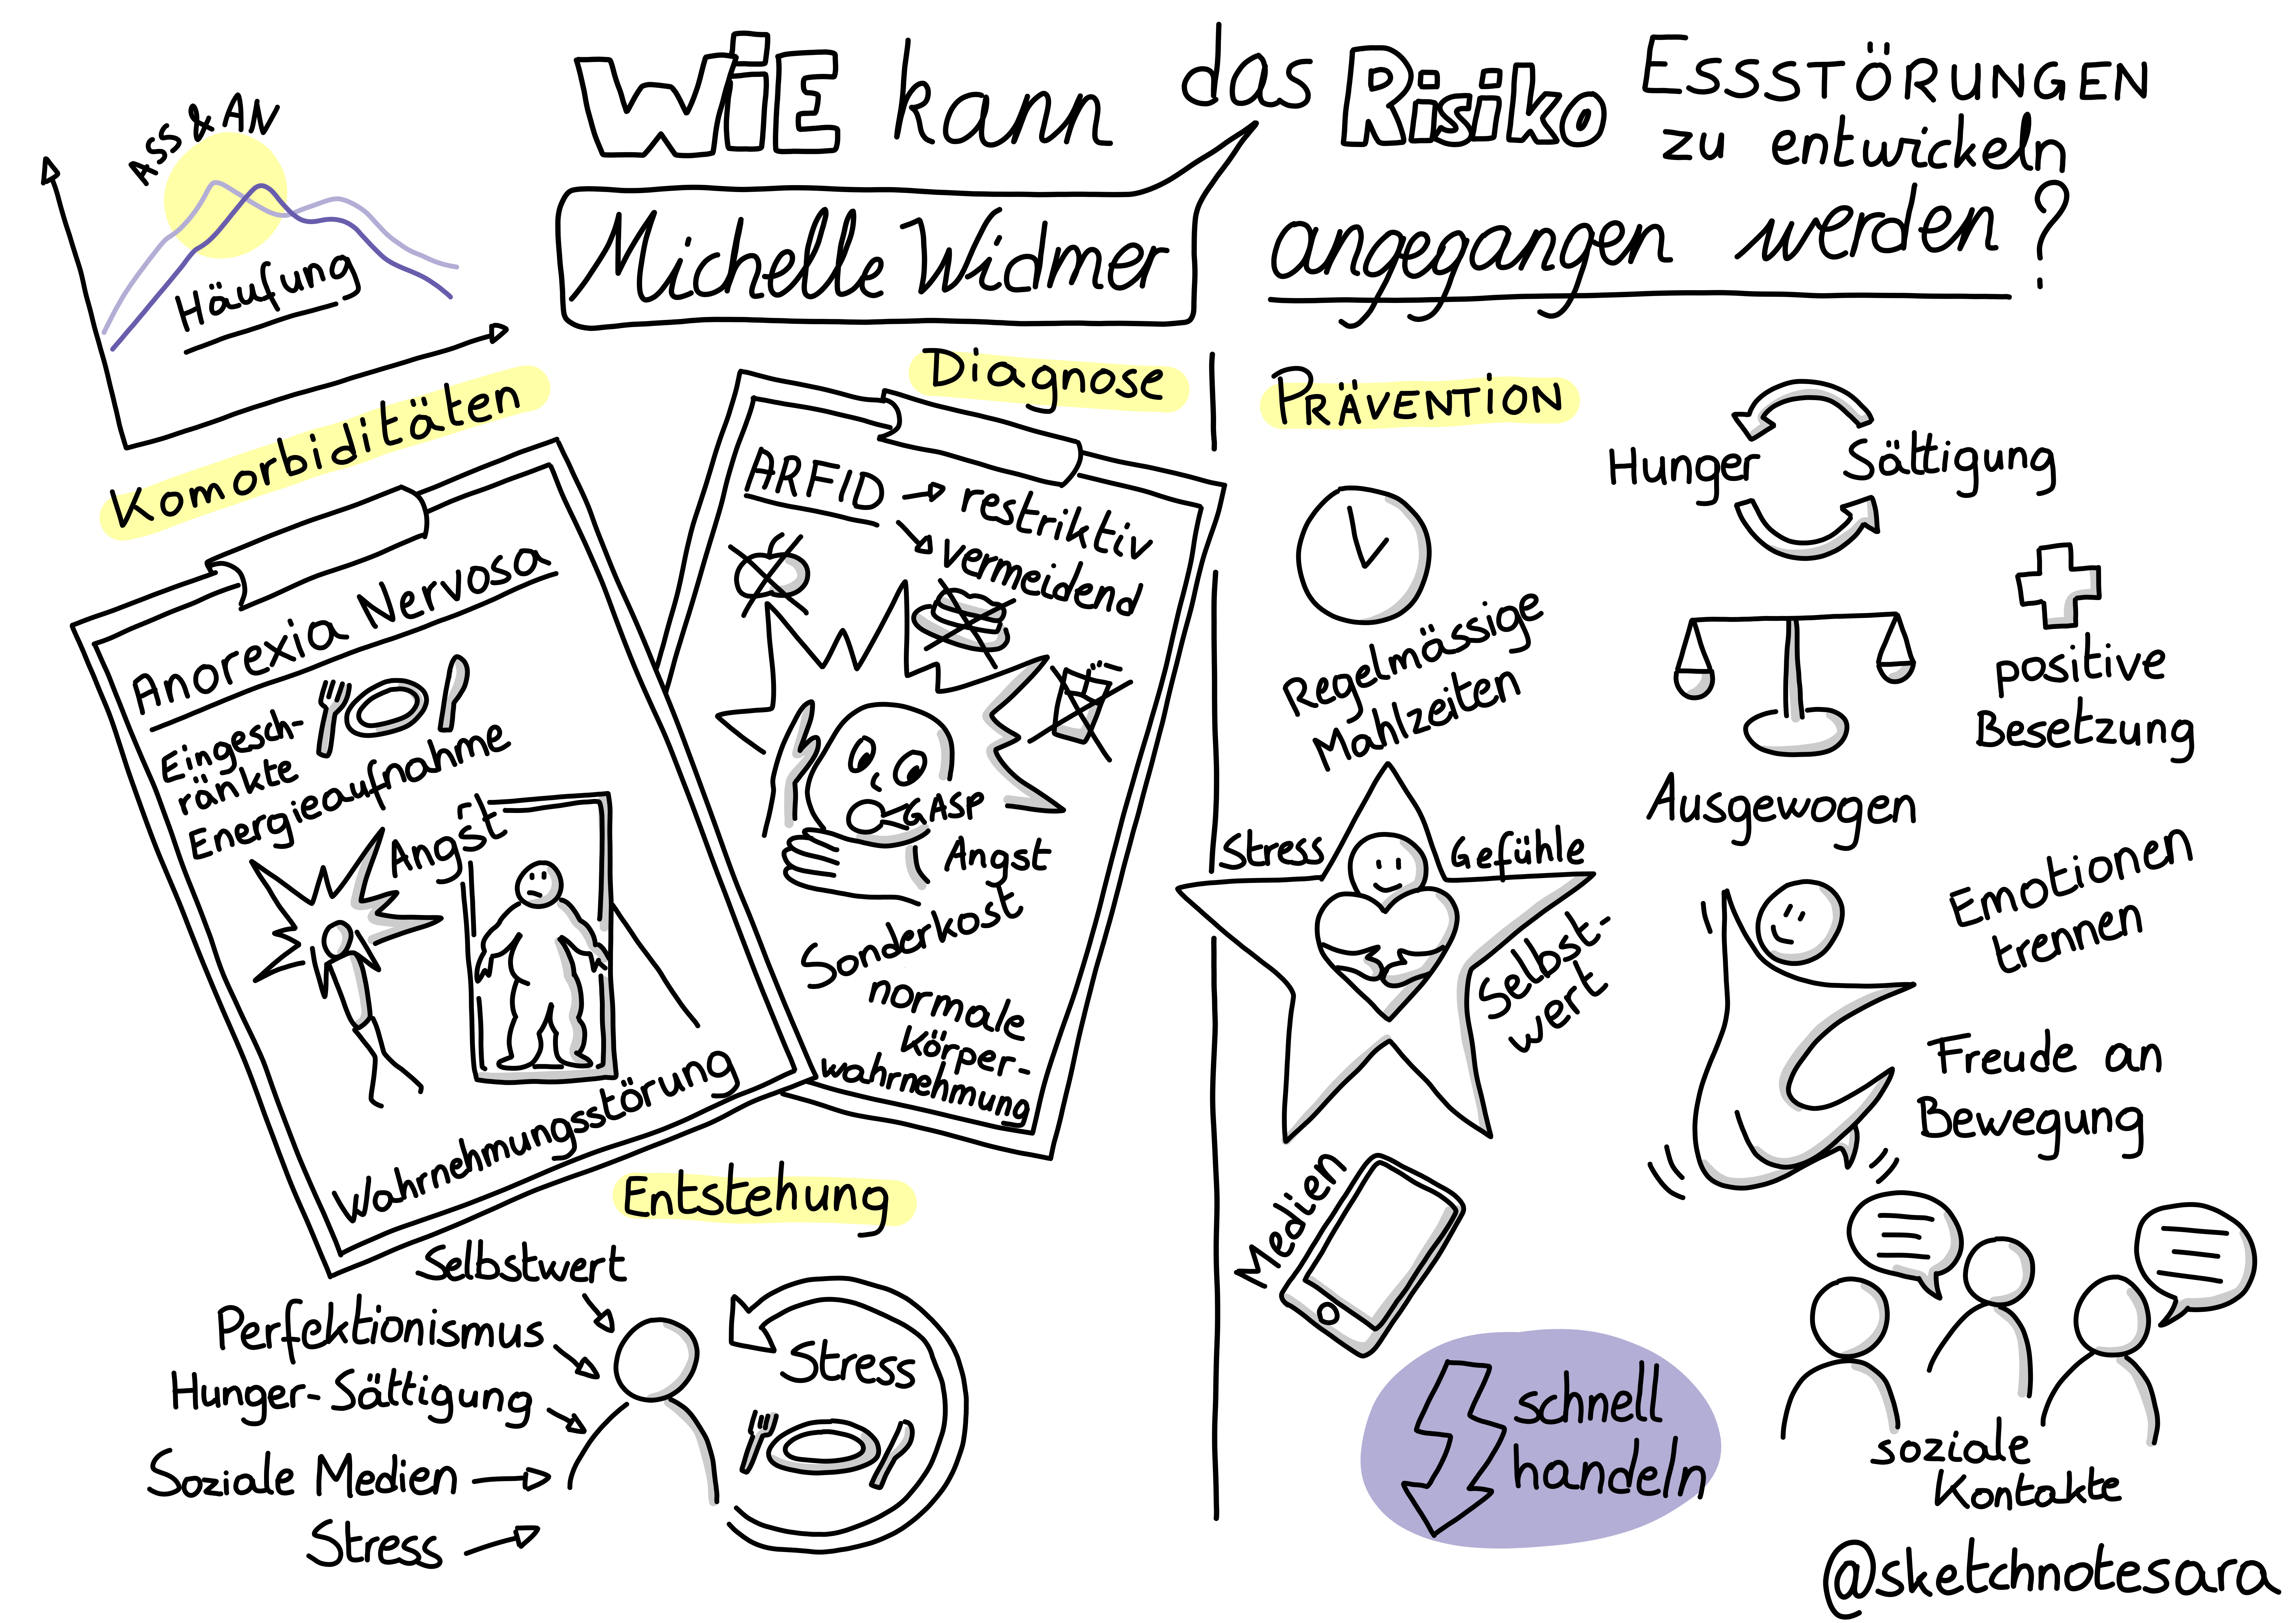 WiE kann das Risiko ESSSTÖRUNGEN
zu entwickeln
angegangen werden?
Michelle Widmer
ASS & AN
Häufung
Komorbiditäten
Anorexia Nervosa
Eingesch-
ränkte
Energieaufnahme
Angst
Wahrnehmungsstörung
Diagnose
ARFID → restriktiv
vermeidend
GASP
Angst
Sonderkost
normale
Körper-
wahrnehmung
Entstehung
Selbstwert
Perfektionismus
Hunger-Sättigung
Soziale Medien
Stress
Stress
PRÄVENTION
Regelmässige
Mahlzeiten
Hunger Sättigung
Ausgewogen
positive
Besetzung
Stress
Gefühle
Selbst-
wert
Emotionen
trennen
Freude an
Bewegung
Medien
schnell
handeln
soziale
Kontakte
@sketchnotesara